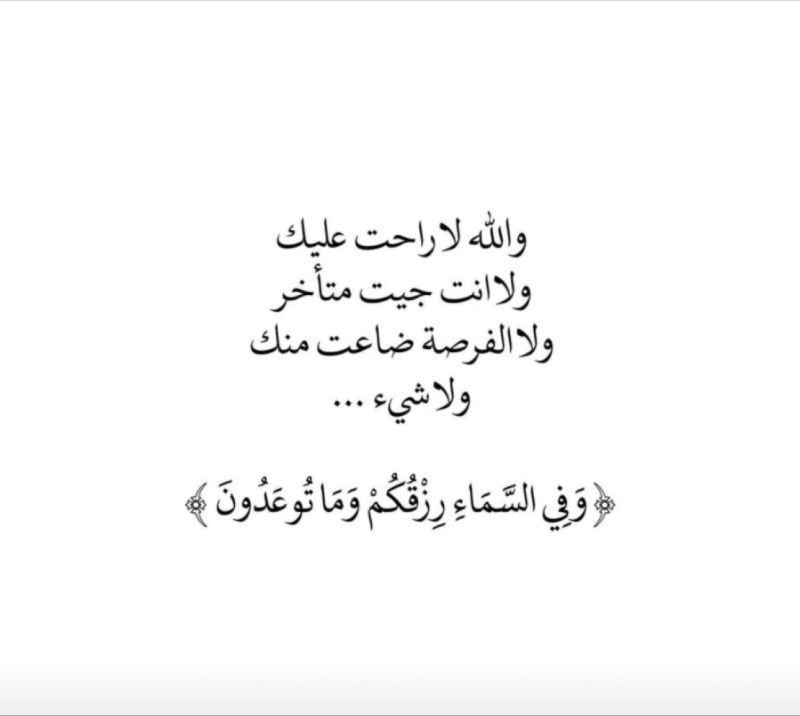 والله لا راحت عليك
ولا انت جيت متأخر
ولا الفرصة ضاعت منك
ولا شيء ...
﴿وَفِي السَّمَاءِ رِزْقُكُمْ وَمَا تُوعَدُونَ﴾